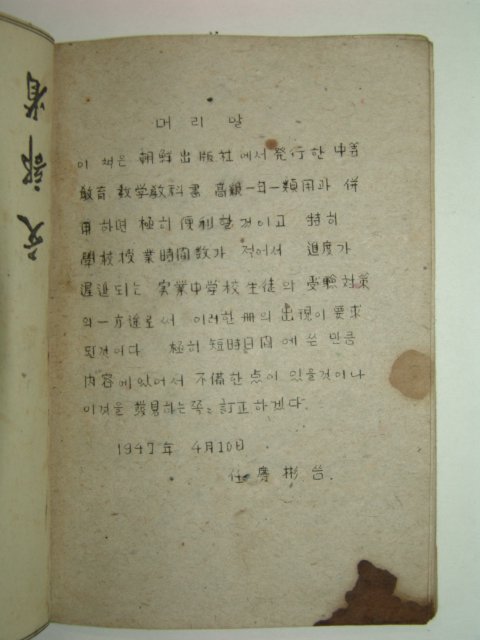 머리말
이 책은 朝鮮出版社에서 発行한 中等
敎育 数学敎科書 高級一의一類用과 併
用하면 極히 便利할것이고 特히
學校授業時間数가 적어서 進度가
遲進되는 実業中学校生徒의 受驗対策
의一方途로써 이러한 冊의 出現이 要求
된것이다. 極히 短時日間에 쓴 만큼
内容에있어서 不備한 点이 있을것이나
이것을 發見하는쪽쪽 訂正하겠다.
1947年 4月10日
任 彬 씀.
文部省